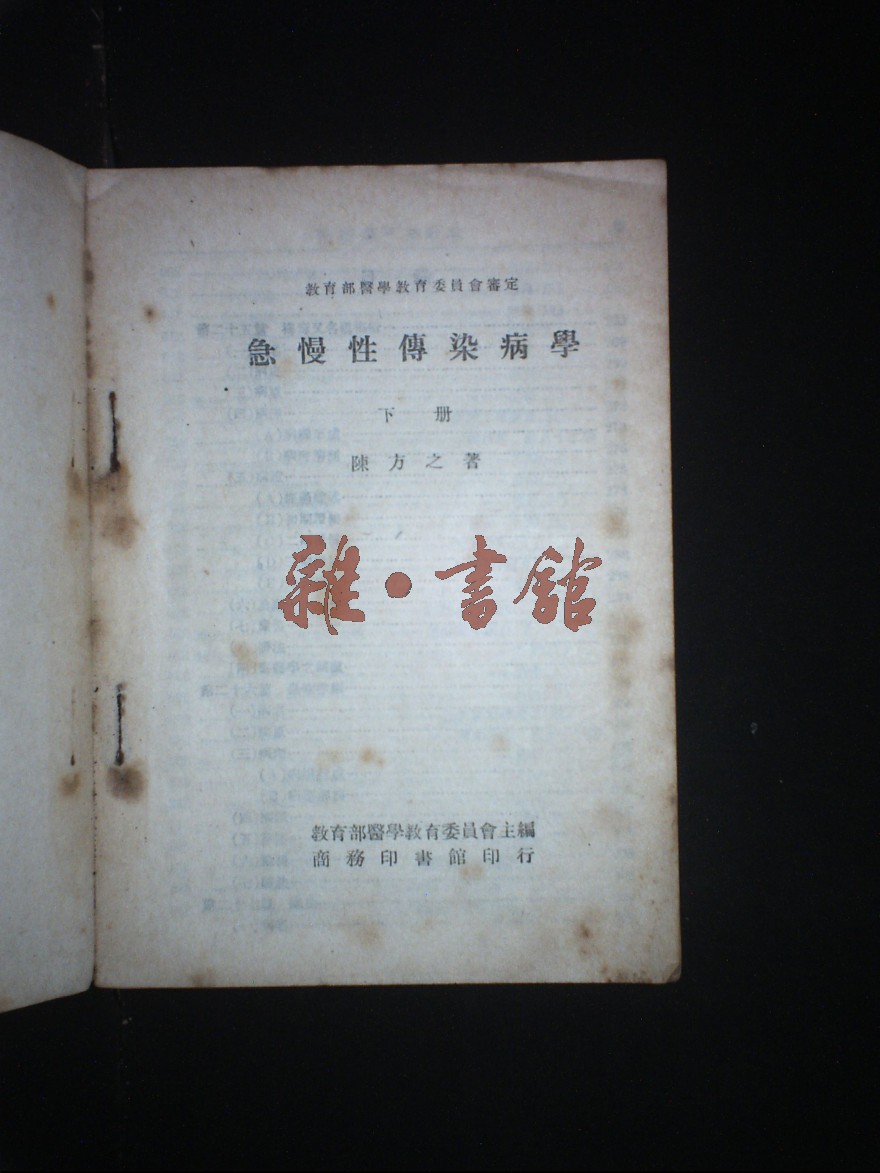 教育部醫學教育委員會審定
急慢性傳染病學
下册
陳方之著
雜·書館
教育部醫學教育委員會主編
商務印書館印行